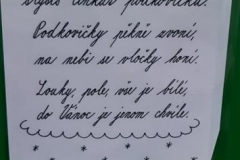 slyšíš cinkat podkovičku.
Podkovičky pěkně zvoní,
na nebi se vločky honí.
Louky, pole, vše je bílé,
do Vánoc je jenom chvíle.